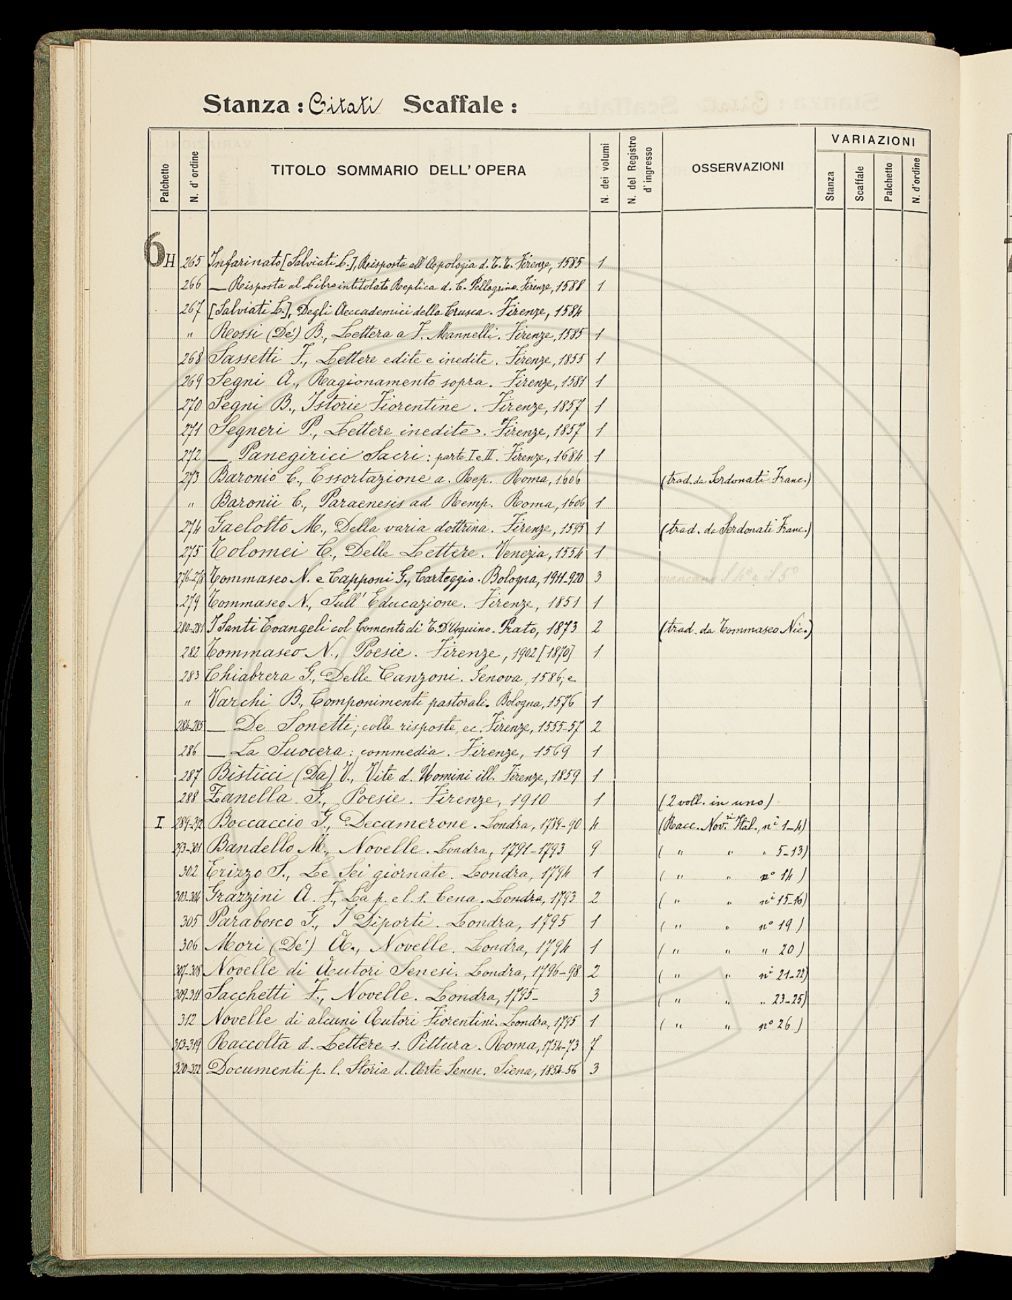 Stanza: Citati Scaffale:
Palchetto N. d'ordine TITOLO SOMMARIO DELL'OPERA N. dei volumi N. del Registro d'ingresso OSSERVAZIONI VARIAZIONI
Stanza Scaffale Palchetto N. d'ordine
6
H 265 Infarinato [Salviati L.], Risposta all'Apologia d. T. T. Firenze, 1585 1
266 — Risposta al Libro intitolato Replica d. C. Pellegrino. Firenze, 1588 1
267 [Salviati L.], Degli Accademici della Crusca. Firenze, 1584
" Rossi (De') B., Lettera a F. Mannelli. Firenze, 1585 1
268 Sassetti F., Lettere edite e inedite. Firenze, 1855 1
269 Segni A., Ragionamento sopra. Firenze, 1581 1
270 Segni B., Istorie Fiorentine. Firenze, 1857 1
271 Segneri P., Lettere inedite. Firenze, 1857 1
272 — Panegirici Sacri: parte I e II. Firenze, 1684 1
273 Baronio C., Essortazione a. Rep. Roma, 1606 (trad. da Serdonati Franc.)
" Baronii C., Paraenesis ad Remp. Roma, 1606 1
274 Gaelotto M., Della varia dottrina. Firenze, 1595 1 (trad. da Serdonati Franc.)
275 Tolomei C., Delle Lettere. Venezia, 1554 1
276-278 Tommaseo N. e Capponi G., Carteggio. Bologna, 1911-920 3 mancano il 4° e il 5°
279 Tommaseo N., Sull'Educazione. Firenze, 1851 1
280-281 I Santi Evangeli col Comento di T. D'Aquino. Prato, 1873 2 (trad. da Tommaseo Nic.)
282 Tommaseo N., Poesie. Firenze, 1902 [1870] 1
283 Chiabrera G., Delle Canzoni. Genova, 1586, e
" Varchi B., Componimenti pastorali. Bologna, 1576 1
284-285 — De Sonetti; colle risposte, ec. Firenze, 1555-57 2
286 — La Suocera: commedia. Firenze, 1569 1
287 Bisticci (Da) V., Vite d. Uomini ill. Firenze, 1859 1
288 Zanella G., Poesie. Firenze, 1910 1 (2 voll. in uno)
I 289-92 Boccaccio G., Decamerone. Londra, 1789-90 4 (Racc. Nov.e Ital., ni 1-4)
293-301 Bandello M., Novelle. Londra, 1791-1793 9 ( " " " 5-13)
302 Erizzo S., Le Sei giornate. Londra, 1794 1 ( " " n° 14)
303-304 Grazzini A. F., La p. e l. s. Cena. Londra, 1793 2 ( " " ni 15-16)
305 Parabosco G., I Diporti. Londra, 1795 1 ( " " n° 19)
306 Mori (De') A., Novelle. Londra, 1794 1 ( " " " 20)
307-308 Novelle di Autori Senesi. Londra, 1796-98 2 ( " " ni 21-22)
309-311 Sacchetti F., Novelle. Londra, 1795- 3 ( " " " 23-25)
312 Novelle di alcuni Autori Fiorentini. Londra, 1795 1 ( " " n° 26)
313-319 Raccolta d. Lettere s. Pittura. Roma, 1754-73 7
320-322 Documenti p. l. Storia d. Arte Senese. Siena, 1854-56 3